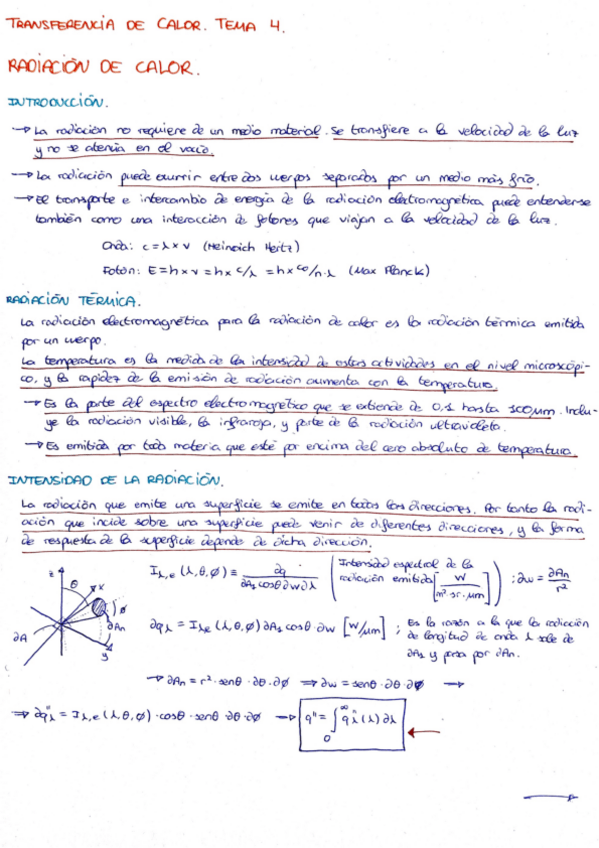 TRANSFERENCIA DE CALOR. TEMA 4.
RADIACIÓN DE CALOR.
INTRODUCCIÓN.
→ La radiación no requiere de un medio material. Se transfiere a la velocidad de la luz
y no se atenúa en el vacío.
→ La radiación puede ocurrir entre dos cuerpos separados por un medio más frío.
→ El transporte e intercambio de energía de la radiación electromagnética puede entenderse
también como una interacción de fotones que viajan a la velocidad de la luz.
Onda: c = λ × ν (Heinrich Hertz)
Fotón: E = h × ν = h × c/λ = h × c₀/n·λ (Max Planck)
RADIACIÓN TÉRMICA.
La radiación electromagnética para la radiación de calor es la radiación térmica emitida
por un cuerpo.
La temperatura es la medida de la intensidad de estas actividades en el nivel microscópi-
co, y la rapidez de la emisión de radiación aumenta con la temperatura.
→ Es la parte del espectro electromagnético que se extiende de 0,1 hasta 100 μm. Inclu-
ye la radiación visible, la infrarroja, y parte de la radiación ultravioleta.
→ Es emitida por toda materia que esté por encima del cero absoluto de temperatura.
INTENSIDAD DE LA RADIACIÓN.
La radiación que emite una superficie se emite en todas las direcciones. Por tanto la radi-
ación que incide sobre una superficie puede venir de diferentes direcciones, y la forma
de respuesta de la superficie depende de dicha dirección.
z θ x ϕ ∂An ∂A y
I λ,e (λ,θ,ϕ) ≡ ∂q / ∂A₁ cosθ ∂w ∂λ (Intensidad espectral de la radiación emitida [W / m²·sr·μm]) ; ∂w = ∂An / r²
∂qλ = Iλe (λ,θ,ϕ) ∂A₁ cosθ · ∂w [W/μm] ; Es la razón a la que la radiación
de longitud de onda λ sale de
∂A₁ y pasa por ∂An.
→ ∂An = r² · senθ · ∂θ · ∂ϕ ⇒ ∂w = senθ · ∂θ · ∂ϕ →
⇒ ∂q"λ = Iλ,e (λ,θ,ϕ) · cosθ · senθ · ∂θ · ∂ϕ → q" = ∫₀^∞ q"λ (λ) ∂λ ←